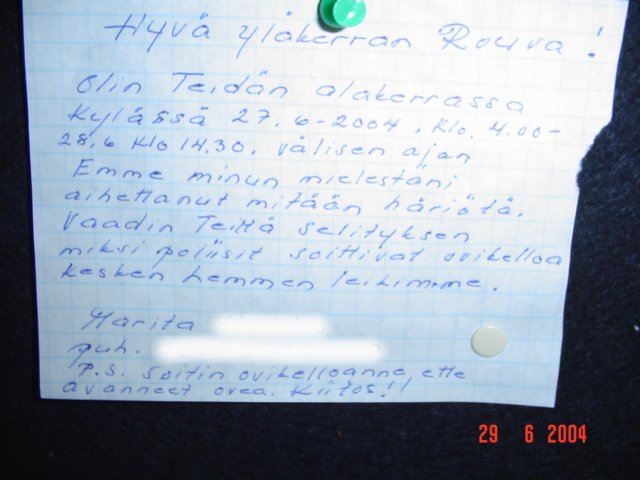 Hyvä yläkerran Rouva!
Olin Teidän alakerrassa
kylässä 27.6-2004. Klo. 4.00-
28.6 Klo 14.30. välisen ajan
Emme minun mielestäni
aihettanut mitään häriötä.
Vaadin Teiltä selityksen
miksi poliisit soittivat ovikelloa
kesken lemmen leikimme.
Marita
puh.
P.S. Soitin ovikelloanne, ette
avanneet ovea. Kiitos!!
29 6 2004